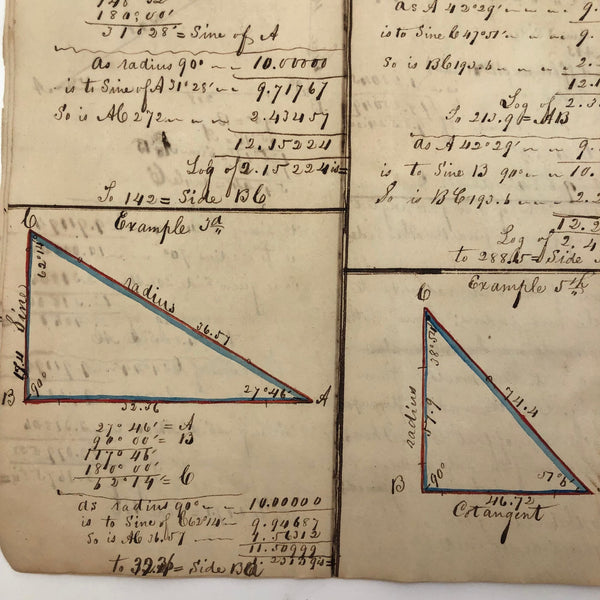 180° 00'
31° 28' = Sine of A
As radius 90° 10.00000
is to Sine of A 31° 28' 9.71767
So is AC 272 2.43457
12.15224
Log of 2.15224 is =
To 142 = Side BC
Example 3d
C
62° 14'
Sine
radius
36.57
B
90°
27° 46'
A
32.36
27° 46' = A
90° 00' = B
117° 46'
180° 00'
62° 14' = C
As radius 90° 10.00000
is to Sine of C 62° 14' 9.94687
So is AC 36.57 1.56312
11.50999
to = Side BA
As A 42° 29' 9.
is to Sine C 47° 31' 9.
So is BC 193.6 2.
12.1
Log of 2.3
To 213.9 = AB
As A 42° 29' 9.
is to Sine B 90° 10.
So is BC 193.6 2.2
12.2
Log of 2.4
to 288.5 = Side
Example 5th
C
38° 54'
radius
57.9
74.4
B
90°
51° 6'
46.72
Cotangent